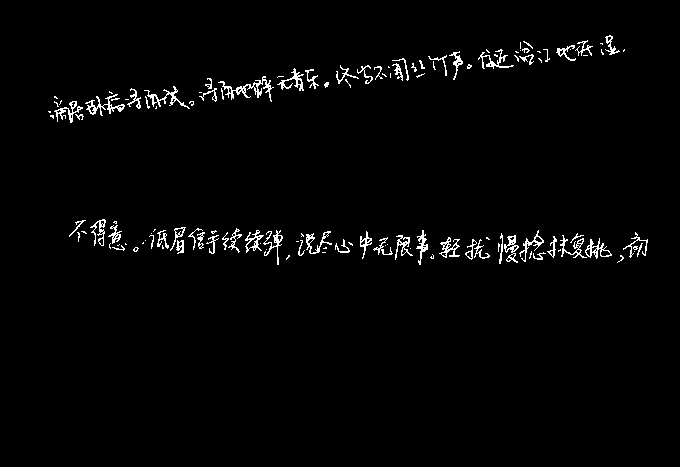 谪居卧病浔阳城。浔阳地僻无音乐。终岁不闻丝竹声。住近湓江地低湿.
不得意。低眉信手续续弹,说尽心中无限事。轻拢慢捻抹复挑,初